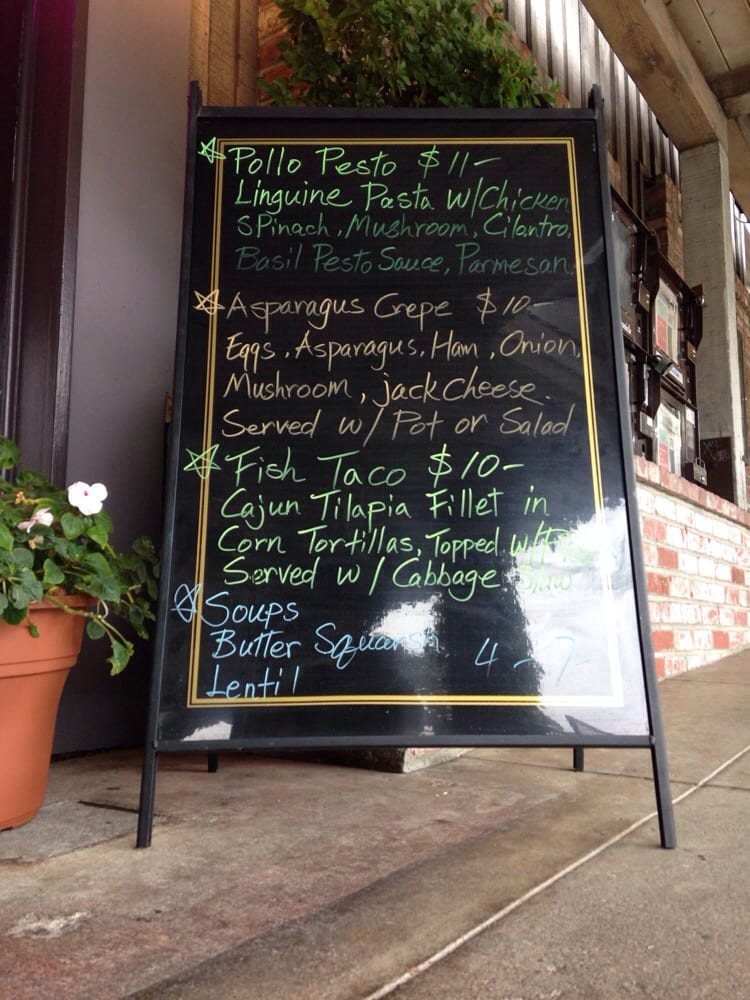 Pollo Pesto $11-
Linguine Pasta w/Chicken
Spinach, Mushroom, Cilantro,
Basil Pesto Sauce, Parmesan.
Asparagus Crepe $10-
Eggs, Asparagus, Ham, Onion,
Mushroom, jack cheese.
Served w/ Pot or Salad
Fish Taco $10-
Cajun Tilapia Fillet in
Corn Tortillas, Topped w/
Served w/ Cabbage Slaw
Soups
Butter Squarsh 4-7-
Lentil